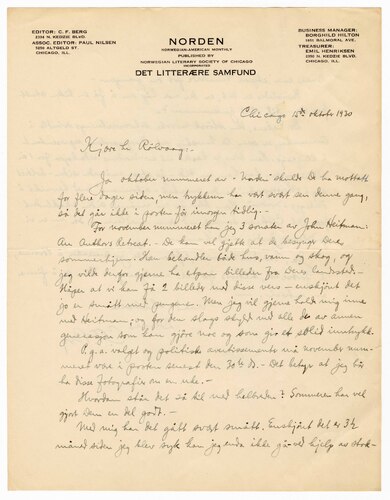 EDITOR: C. F. BERG
2334 N. KEDZIE BLVD.
ASSOC. EDITOR: PAUL NILSEN
1250 ALTGELD ST.
CHICAGO, ILL.
NORDEN
NORWEGIAN-AMERICAN MONTHLY
PUBLISHED BY
NORWEGIAN LITERARY SOCIETY OF CHICAGO
INCORPORATED
DET LITTERÆRE SAMFUND
BUSINESS MANAGER:
BORGHILD HILTON
1651 BALMORAL AVE.
TREASURER:
EMIL HENRIKSEN
2390 N. KEDZIE BLVD.
CHICAGO, ILL.
Chicago 15th oktober 1930
Kjære hr Rölvaag:-
Ja oktober nummeret av "Norden" skulde De ha mottatt
for flere dager siden, men trykkeren har vært svært sen denne gang,
så det går ikke i posten för imorgen tidlig.
For november nummeret har jeg 3 sonetter av John Heitman:
An Author's Retreat. - De kan vel gjette at de besynger Deres
sommerhjem. Han behandler både hus, vann og skog, og
jeg vilde derfor gjerne ha et par billeder fra Deres landsted.
Håper at vi kan få 2 billeder med disse vers - enskjönt det
jo er smått med pengene. Men jeg vil gjerne holde mig inne
med Heitman, og for den slags skyld med alle de av annen
generasjon som kan gjöre noe og som gir et solid inntrykk.
P.g.a. valget og politiske avertissements må november num-
meret være i posten senest den 30th ds. - Det betyr at jeg bör
ha disse fotografier om en uke. -
Hvordan står det så til med helbreden? Sommeren har vel
gjort Dem en del godt. -
Med mig har det gått svært smått. Enskjönt det er 3½
måned siden jeg blev syk kan jeg enda ikke gå ved hjelp av stok-